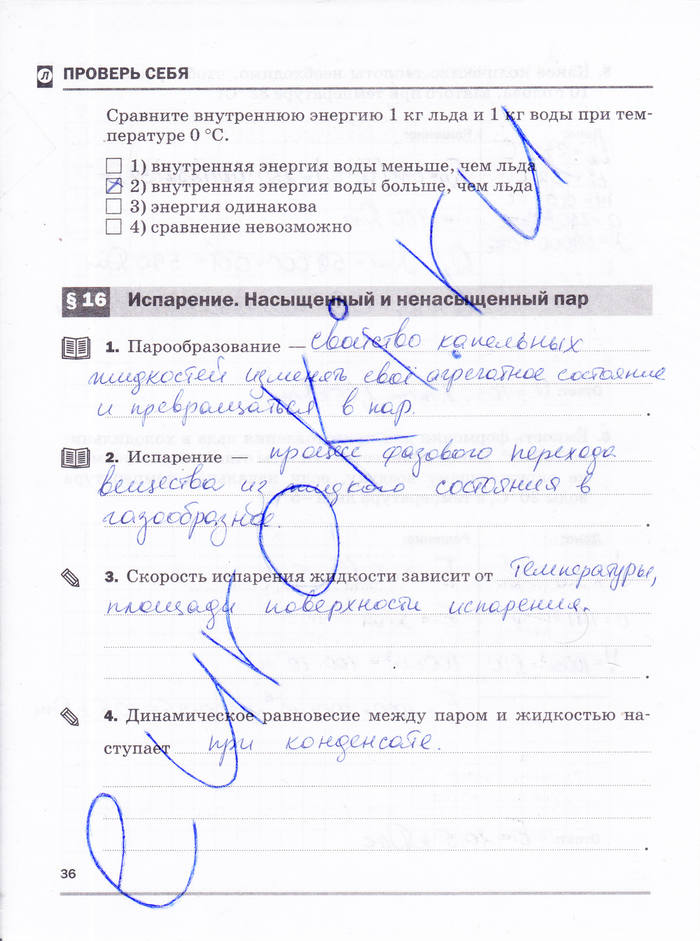 Л ПРОВЕРЬ СЕБЯ
Сравните внутреннюю энергию 1 кг льда и 1 кг воды при тем-
пературе 0 °С.
1) внутренняя энергия воды меньше, чем льда
2) внутренняя энергия воды больше, чем льда
3) энергия одинакова
4) сравнение невозможно
§ 16 Испарение. Насыщенный и ненасыщенный пар
1. Парообразование — свойство капельных
жидкостей изменять своё агрегатное состояние
и превращаться в пар.
2. Испарение — процесс фазового перехода
вещества из жидкого состояния в
газообразное.
3. Скорость испарения жидкости зависит от температуры,
площади поверхности испарения.
4. Динамическое равновесие между паром и жидкостью на-
ступает при конденсате.
36
eurokI.ru